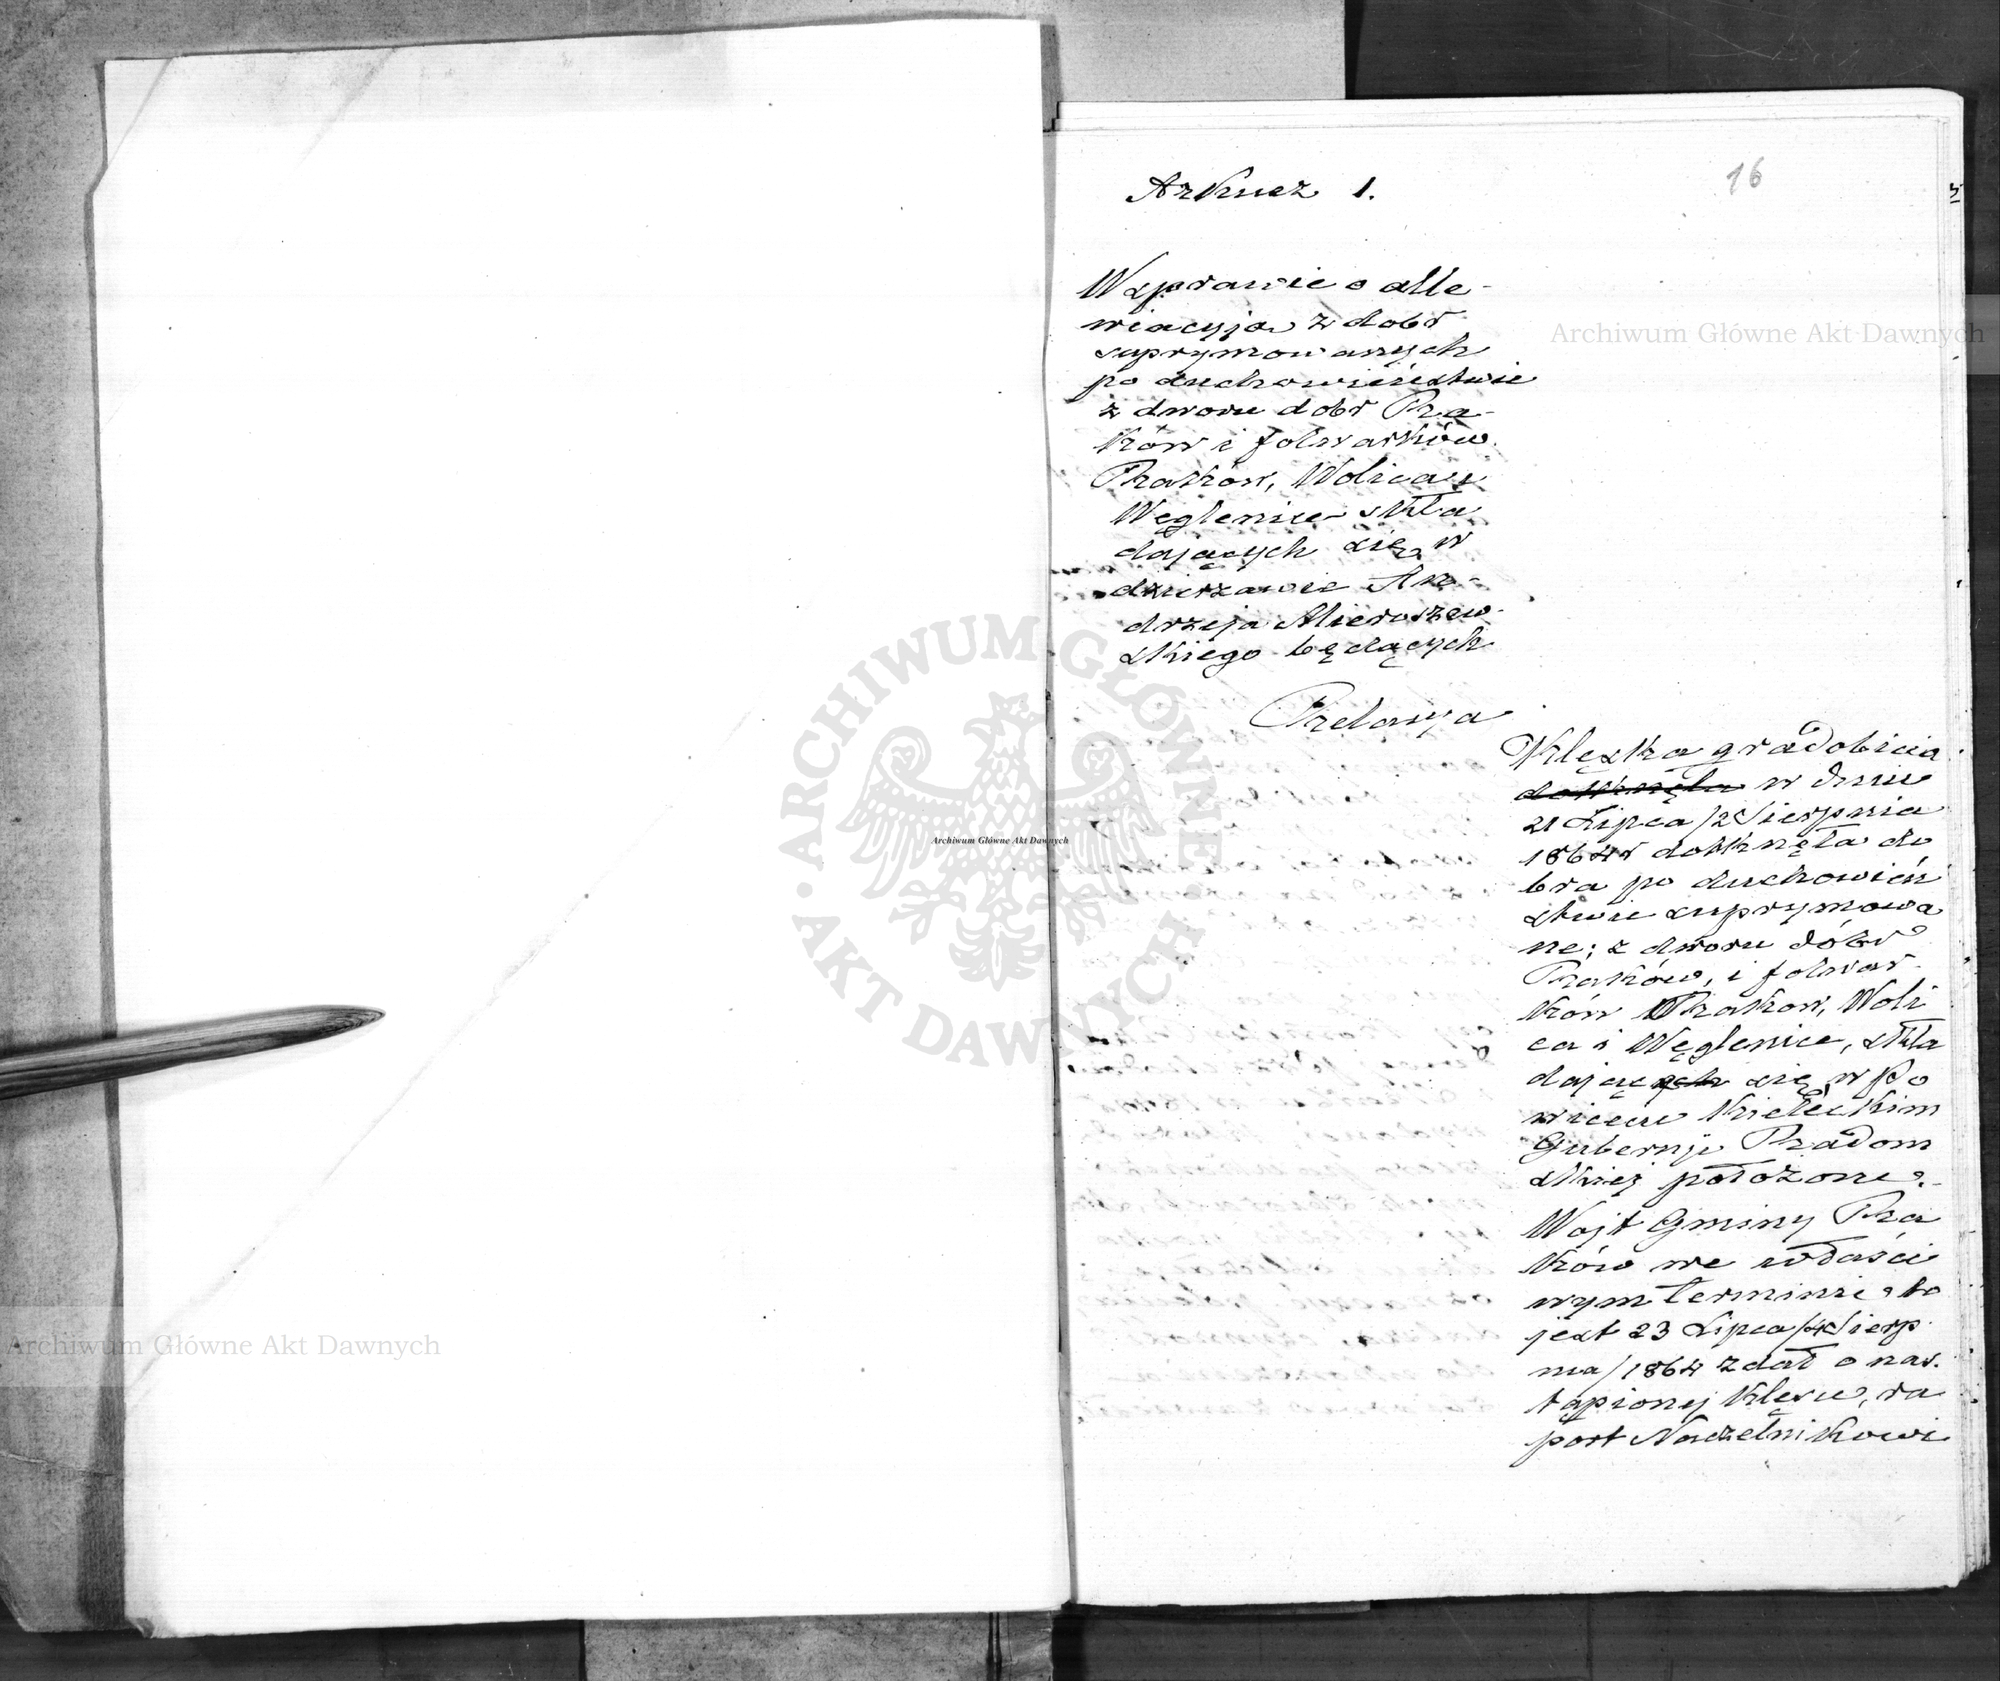 16
Arkusz 1.
W sprawie o alle-
wiacyją z dóbr
suprymowanych
po duchowieństwie
z dworu dobr Ra-
ków i folwarków
Raków, Wolica i
Węglenice skła
dających się w
dzierzawie An-
drzeja Mieroszew-
skiego będących
Relacya
Klęska gradobicia
dotknęła w dniu
21 Lipca /2 Sierpnia
1864 r dotknęła do
bra po duchowień
stwie suprymowa
ne; z dworu dóbr
Raków, i folwar-
ków Rakow, Woli
ca i Węglenice, skła
dające się w Po
wiecie Kieleckim
Gubernji Radom
skiej położone.-
Wojt Gminy Ra
ków we właści
wym terminie to
jest 23 Lipca /4 Sierp
nia/ 1864 zdał o nas-
tąpionej klęsce, ra
port Naczelnikowi
Archiwum Główne Akt Dawnych
Archiwum Główne Akt Dawnych
Archiwum Główne Akt Dawnych
ARCHIWUM GŁÓWNE
AKT DAWNYCH